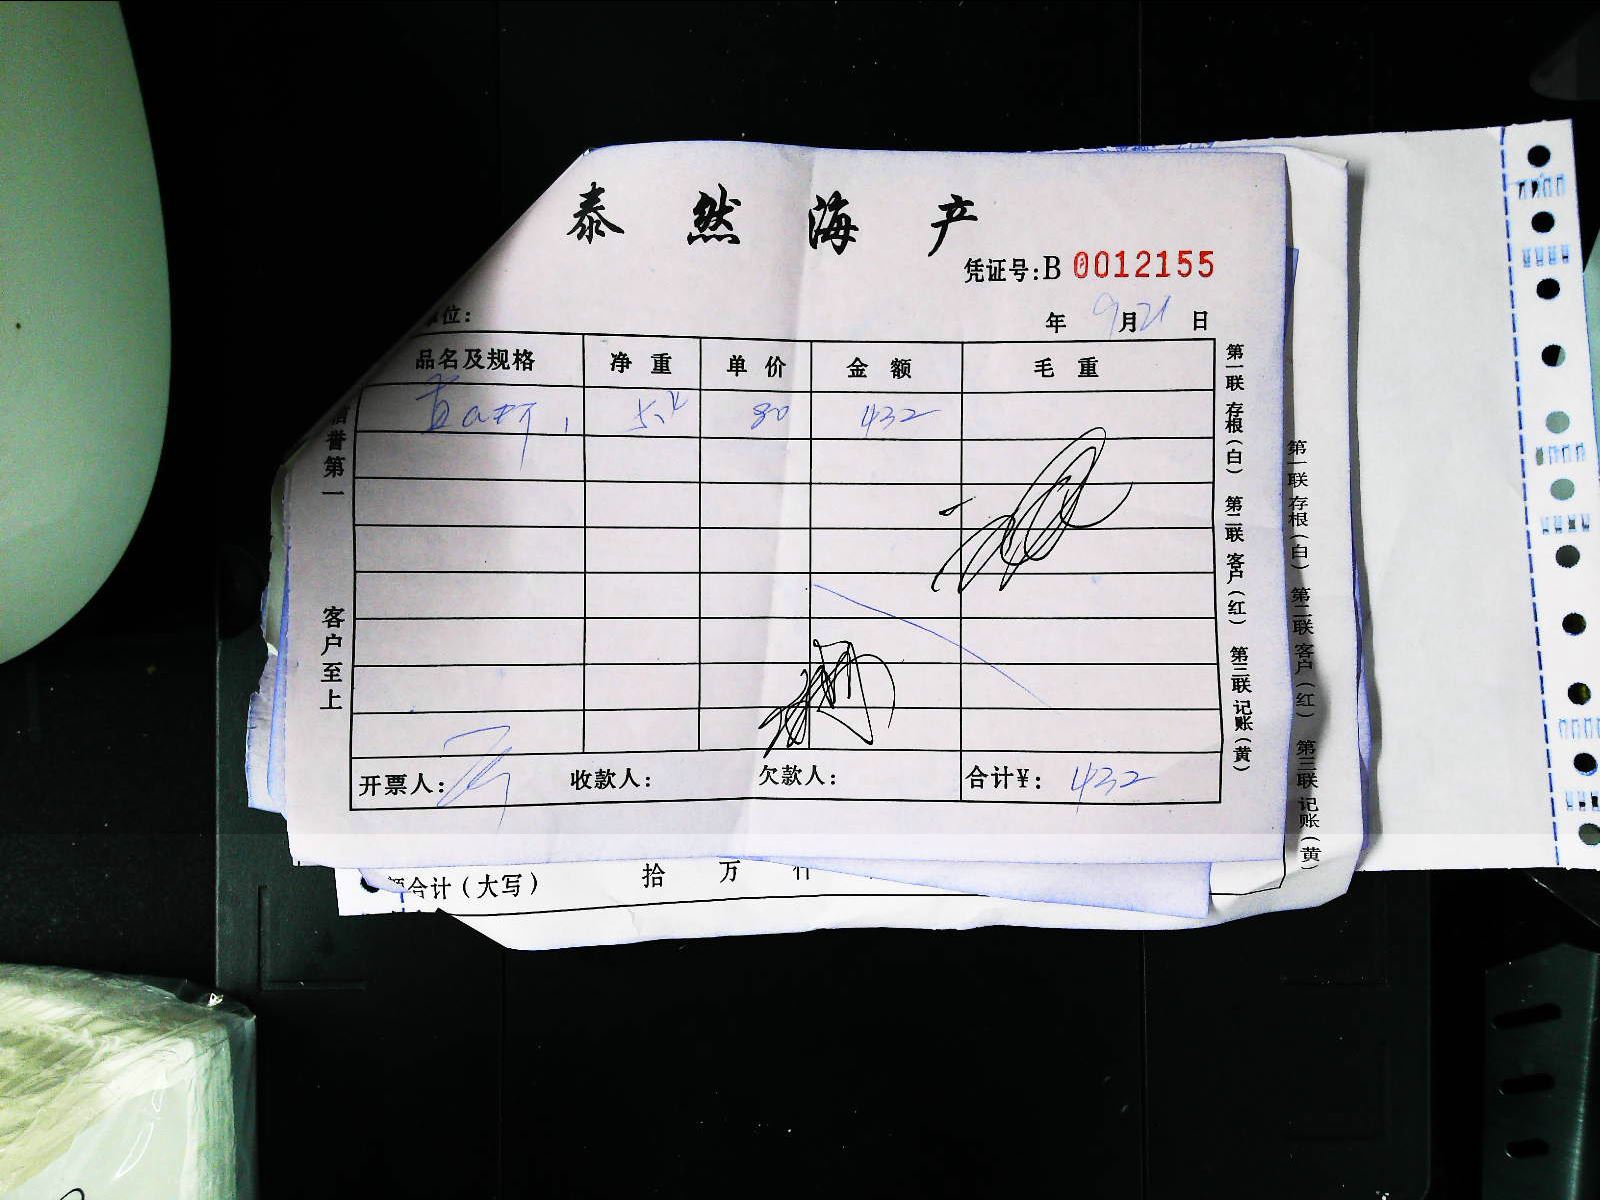 泰然海产
凭证号:B 0012155
单位:
年 9月21日
品名及规格 净重 单价 金额 毛重
80 432
信誉第一
客户至上
第一联 存根(白) 第二联 客户(红) 第三联 记账(黄)
开票人: 收款人: 欠款人: 合计¥: 432
第一联 存根(白) 第二联 客户(红) 第三联 记账(黄)
合计(大写) 拾 万 仟